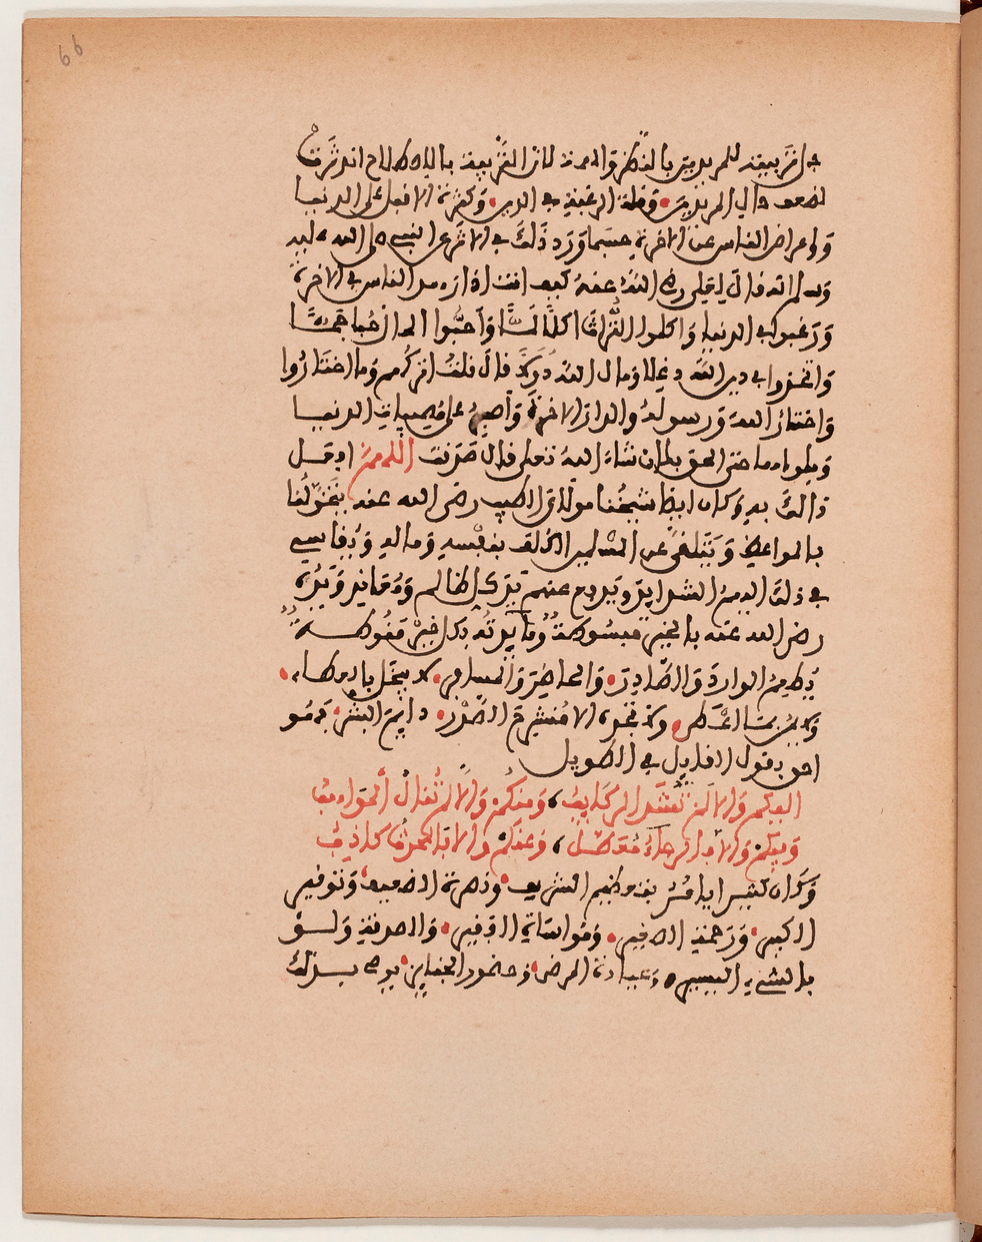 66
جل تربيته للمريدين بالنظر والهمة لان التربية بالاصطلاح اندثرت
لضعف حال المريدين وقلة الرغبة في الدين وكثرة الاقبال على الدنيا
واعراض الناس عن الاخرة حسبما ورد ذلك في الاثر عن النبي صلى الله عليه
وسلم انه قال لعلي رضي الله عنه كيف انت اذا زهد الناس في الاخرة
ورغبوا في الدنيا واكلوا التراث اكلا لما واحبوا المال حبا جما
واتخذوا دين الله دغلا ومال الله دولا قال قلت اتركهم وما اختاروا
واختار الله ورسوله والدار الاخرة واصبر على مصيبات الدنيا
وبلواها حتى الحق بك ان شاء الله تعلى قال صدقت اللهم افعل
ذالك به وكان ايضا شيخنا مولاي الطيب رضي الله عنه يتخولنا
بالمواعظ ويتلقى عن المسلمين الكلف بنفسه وماله ويقاسي
في ذلك الهموم الشدايد ويدفع عنهم يد كل ظالم ومعاند ويده
رضي الله عنه بالخير مبسوطة ومايدته بكل خير مغبوطة
يطعم الوارد والصادر والحاضر والمسافر لا يبخل بالعطاء
ولا تجده الا منشرح الصدر دايم البشر فهو
احق بقول القايل في الطويل
اليكم والا لن تشد الركايب ومنكم والا لن تنال المواهب
وفيكم والا فالرجاء معطل وعنكم والا فالمحدث كاذب
وكان كثيرا يامر بتعظيم الشريف ونصرة الضعيف وتوقير
الكبير ورحمة الصغير ومواساة الفقير والصدقة ولو
بالشيء اليسير وعيادة المرضى وحضور الجنايز يوصي بذلك